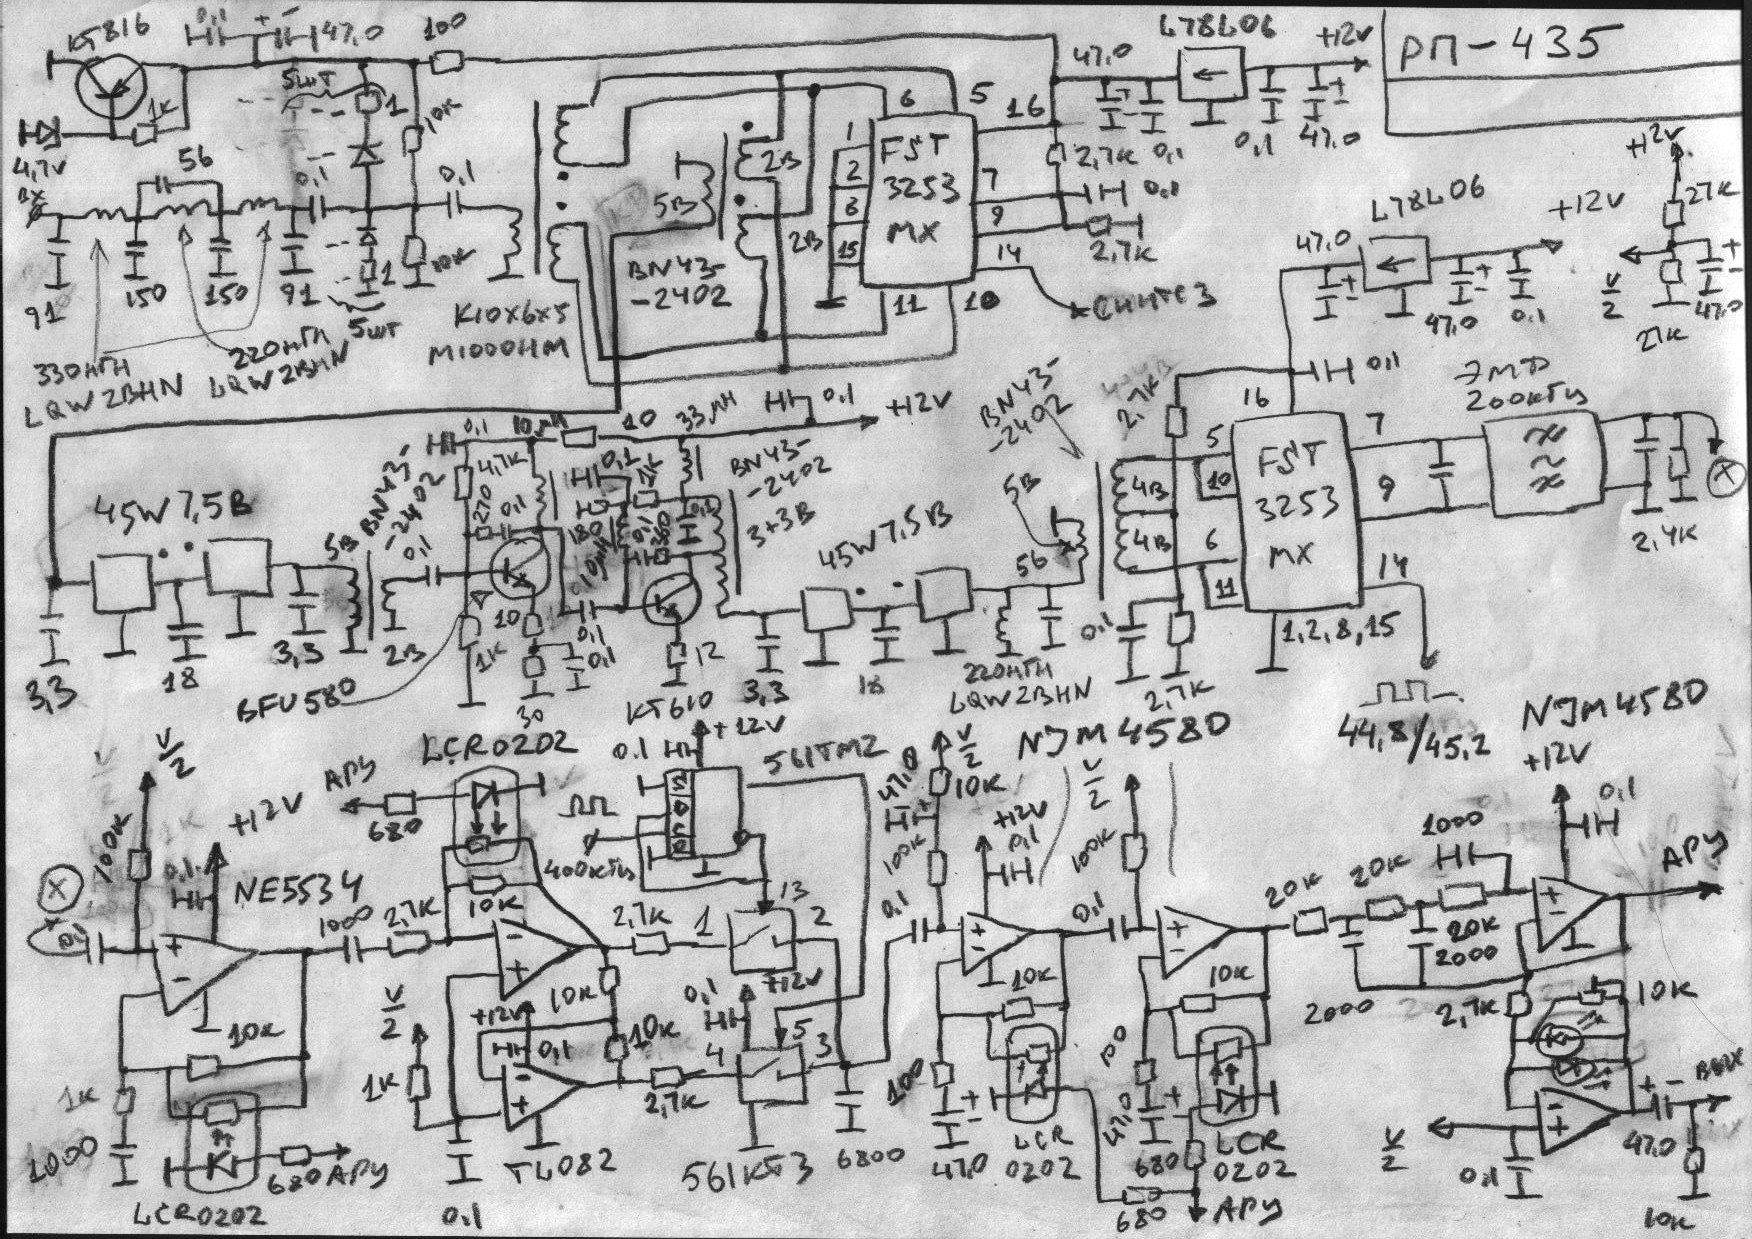 КТ816
0,1
+ -
47,0
100
47,0
L78L06
+12V
РП-435
5шт
1
1К
10К
4,7V
ВХ
56
0,1
0,1
10К
91
150
150
91
1
5шт
330нГн
LQW2BHN
220нГн
LQW2BHN
К10х6х5
М1000НМ
5В
2В
2В
BN43-
-2402
6
5
16
1
2
8
15
FST
3253
MX
7
9
14
11
10
2,7К
0,1
0,1
47,0
0,1
2,7К
СИНТЕЗ
L78L06
+12V
47,0
47,0
0,1
+12V
27К
V/2
47,0
27К
45W7,5В
3,3
18
3,3
5В
BN43-
-2402
2В
0,1
0,1
10μH
10
33μH
0,1
+12V
4,7К
270
0,1
0,1
1К
180
0,1
10
1К
30
0,1
0,1
BFU580
КТ610
12
BN43-
-2402
3+3В
3,3
45W7,5В
18
56
220нГн
LQW2BHN
5В
BN43-
-2402
4В
4В
2,7К
0,1
2,7К
16
0,1
5
10
6
11
FST
3253
MX
7
9
14
1,2,8,15
ЭМФ
200кГц
X
2,4К
44,8/45,2
X
0,1
100К
V/2
0,1
+12V
NE5534
10К
1К
1000
LCR0202
680
АРУ
АРУ
680
LCR0202
1000
2,7К
10К
V/2
1К
0,1
+12V
0,1
10К
10К
TL082
2,7К
2,7К
0,1
+12V
561ТМ2
400кГц
1
13
2
+12V
0,1
4
5
3
561КТ3
6800
47,0
V/2
10К
NJM4580
+12V
0,1
100К
0,1
10К
100
47,0
LCR
0202
680
V/2
100К
0,1
10К
100
47,0
680
LCR
0202
АРУ
20К
20К
20К
1000
2000
2000
NJM4580
+12V
0,1
АРУ
2,7К
10К
V/2
0,1
+ -
47,0
ВЫХ
10К